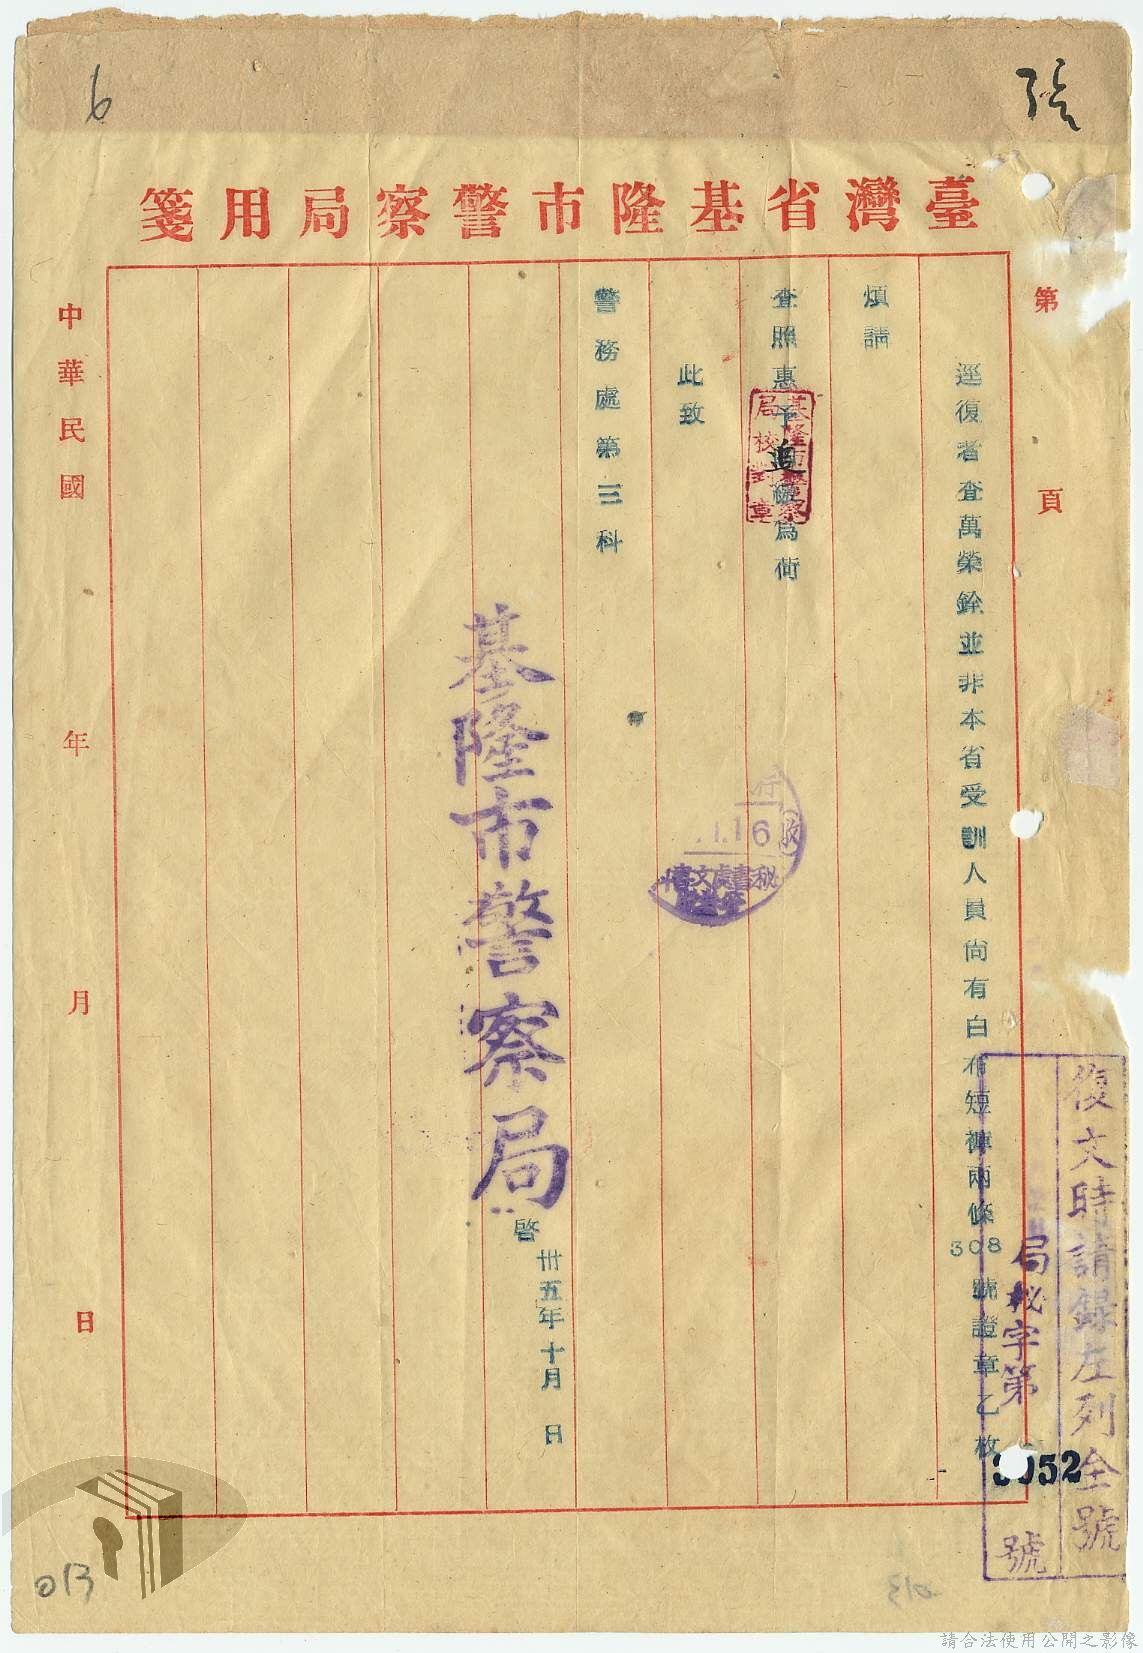 臺灣省基隆市警察局用箋
第
頁
逕復者查萬榮銓並非本省受訓人員尚有白布短褲兩條308號證章乙枚
煩請
查照惠予追繳為荷
基隆市警察
局校對章
此致
警務處第三科
基隆市警察局
啓
卅五年十月 日
中華民國
年
月
日
復文時請錄左列全號
局秘字第
052
號
16
收
秘書處文書
6
013
請合法使用公開之影像